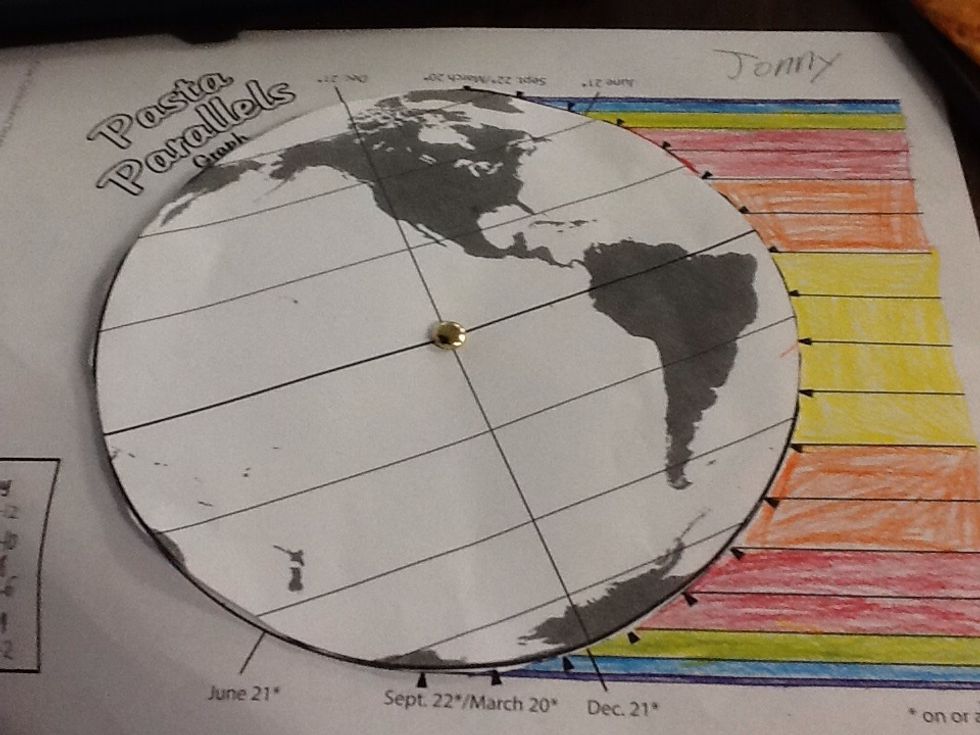 Jonny
Pasta
Parallels
Graph
Dec. 21*
Sept. 22*/March 20*
June 21*
-12
-2
June 21*
Sept. 22*/March 20*
Dec. 21*
* on or a